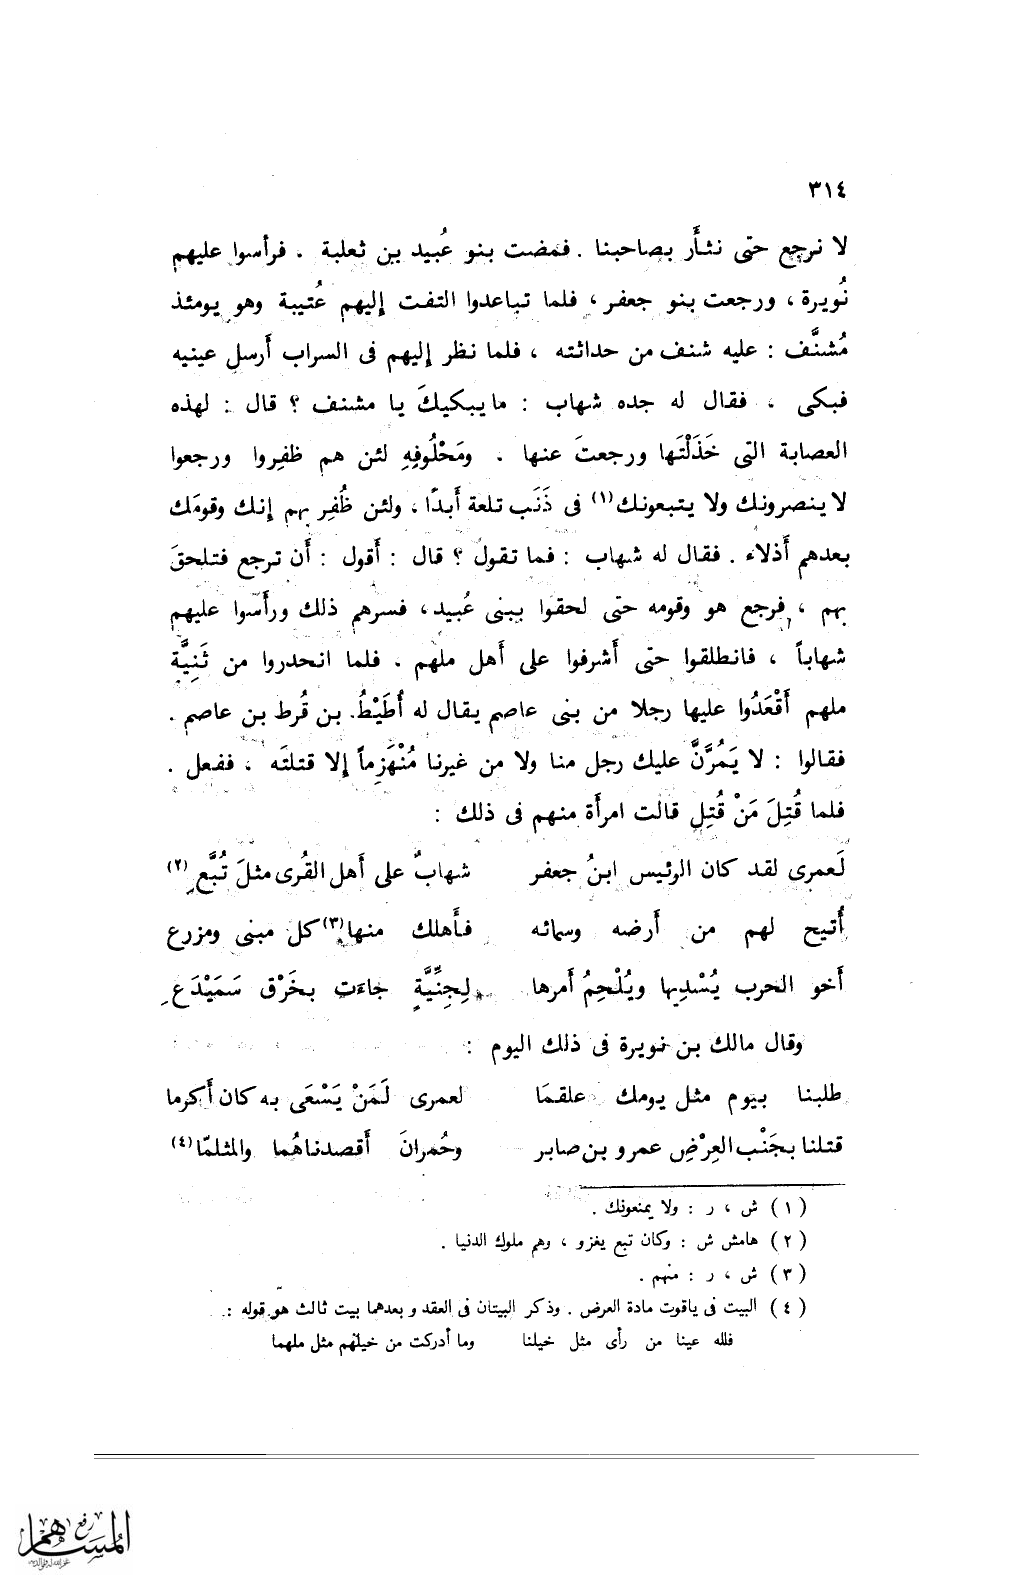 ٣١٤
لا نرجع حتى نثأَر بصاحبنا . فمضت بنو عُبيد بن ثعلبة . فرأسوا عليهم
نُويرة ، ورجعت بنو جعفر ، فلما تباعدوا التفت إليهم عُتيبة وهو يومئذ
مُشنَّف : عليه شنف من حداثته ، فلما نظر إليهم فى السراب أَرسل عينيه
فبكى ، فقال له جده شهاب : ما يبكيكَ يا مشنف ؟ قال : لهذه
العصابة التى خَذَلْتَها ورجعتَ عنها . ومَحْلُوفِهِ لئن هم ظفِروا ورجعوا
لا ينصرونك ولا يتبعونك(١) فى ذَنَب تلعة أَبدًا ، ولئن ظُفِر بهم إنك وقومَك
بعدهم أَذلاء . فقال له شهاب : فما تقول ؟ قال : أَقول : أَن ترجع فتلحقَ
بهم ، فرجع هو وقومه حتى لحقوا ببنى عُبيد ، فسرهم ذلك ورأَسوا عليهم
شهاباً ، فانطلقوا حتى أَشرفوا على أَهل ملهم . فلما انحدروا من ثَنِيَّة
ملهم أَقْعَدُوا عليها رجلا من بنى عاصم يقال له أُطَيْطُ. بن قُرط بن عاصم .
فقالوا : لا يَمُرَّنَّ عليك رجل منا ولا من غيرنا مُنْهَزِماً إلا قتلتَه ، ففعل .
فلما قُتِلَ مَنْ قُتِل قالت امرأَة منهم فى ذلك :
لَعمرى لقد كان الرئيس ابنُ جعفر شهابٌ على أَهل القُرى مثلَ تُبَّع (٢)
أُتيح لهم من أَرضه وسمائه فأَهلك منها(٣) كل مبنى ومزرع
أَخو الحرب يُسْدِيها ويُلْحِمُ أَمرها لِجِنِّيَّةٍ جاءَت بخَرْق سَمَيْدَع
وقال مالك بن نويرة فى ذلك اليوم :
طلبنا بيوم مثل يومك علقمَا لعمرى لَمَنْ يَسْعَى به كان أَكرما
قتلنا بجَنْب العِرْضِ عمرو بن صابر وحُمرانَ أَقصدناهُما والمثلمّا(٤)
(١) ش ، ر : ولا يمنعونك .
(٢) هامش ش : وكان تبع يغزو ، وهم ملوك الدنيا .
(٣) ش ، ر : منهم .
(٤) البيت فى ياقوت مادة العرض . وذكر البيتان فى العقد وبعدهما بيت ثالث هو قوله :
فلله عينا من رأى مثل خيلنا وما أدركت من خيلهم مثل ملهما